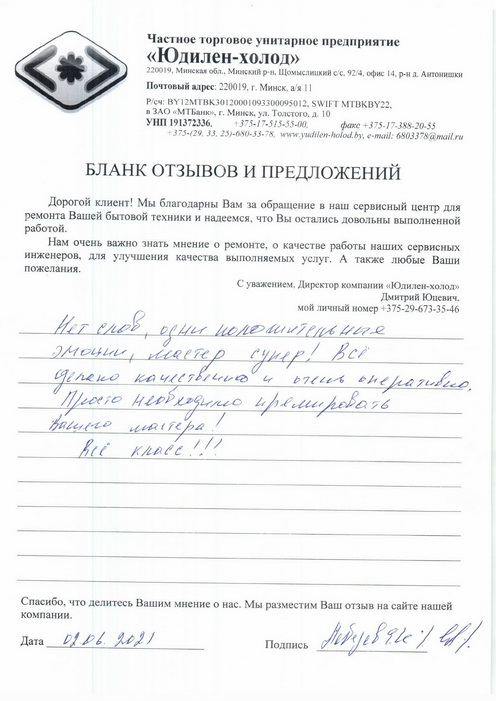 Частное торговое унитарное предприятие
«Юдилен-холод»
220019, Минская обл., Минский р-н, Щомыслицкий с/с, 92/4, офис 14, р-н д. Антонишки
Почтовый адрес: 220019, г. Минск, а/я 11
Р/сч: BY12MTBK30120001093300095012, SWIFT MTBKBY22,
в ЗАО «МТБанк», г. Минск, ул. Толстого, д. 10
УНП 191372336, +375-17-515-55-00, факс +375-17-388-20-55
+375-(29, 33, 25)-680-33-78, www.yudilen-holod.by, e-mail: 6803378@mail.ru
БЛАНК ОТЗЫВОВ И ПРЕДЛОЖЕНИЙ
Дорогой клиент! Мы благодарны Вам за обращение в наш сервисный центр для
ремонта Вашей бытовой техники и надеемся, что Вы остались довольны выполненной
работой.
Нам очень важно знать мнение о ремонте, о качестве работы наших сервисных
инженеров, для улучшения качества выполняемых услуг. А также любые Ваши
пожелания.
С уважением, Директор компании «Юдилен-холод»
Дмитрий Юцевич,
мой личный номер +375-29-673-35-46
Нет слов, одни положительные
эмоции, мастер супер! Всё
сделано качественно и очень оперативно.
Просто необходимо премировать
Вашего мастера!
Всё класс!!!
Спасибо, что делитесь Вашим мнение о нас. Мы разместим Ваш отзыв на сайте нашей
компании.
Дата 02.06.2021 Подпись